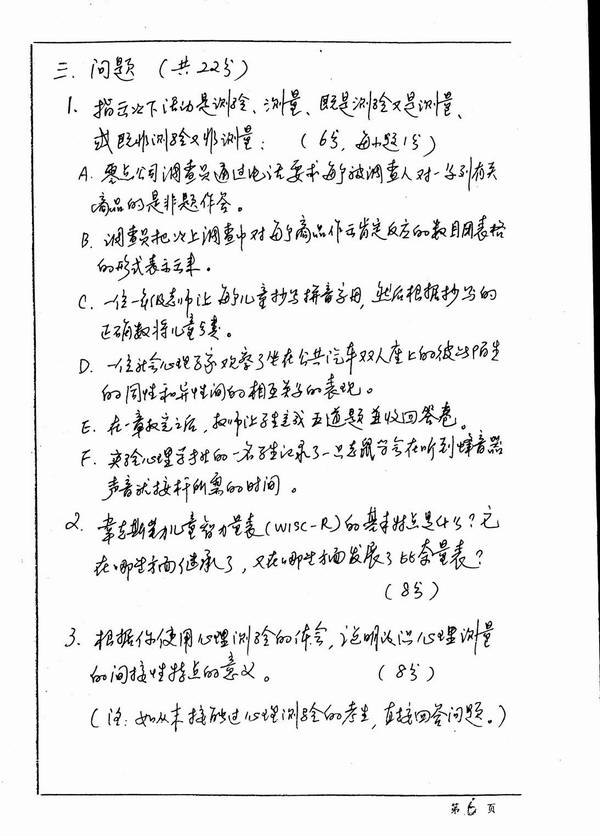 三. 问题 (共22分)
1. 指出以下活动是测验、测量、既是测验又是测量、
或既非测验又非测量: (6分, 每小题1分)
A. 零点公司调查员通过电话要求每个被调查人对一系列有关
商品的是非题作答。
B. 调查员把以上调查中对每个商品作出肯定反应的数目用表格
的形式表示出来。
C. 一位一年级老师让每个儿童抄写拼音字母, 然后根据抄写的
正确数将儿童分类。
D. 一位社会心理学家观察了坐在公共汽车双人座上的彼此陌生
的同性和异性间的相互关系的表现。
E. 在一章教完之后, 教师让学生完成五道题并收回答卷。
F. 实验心理学班的一名学生记录了一只老鼠学会在听到蜂音器
声音就按杆所需的时间。
2. 韦克斯勒儿童智力量表(WISC-R)的基本特点是什么? 它
在哪些方面继承了, 又在哪些方面发展了比奈量表?
(8分)
3. 根据你使用心理测验的体会, 说明认识心理测量
的间接性特点的意义。 (8分)
(注: 如从未接触过心理测验的考生, 直接回答问题。)
第 6 页